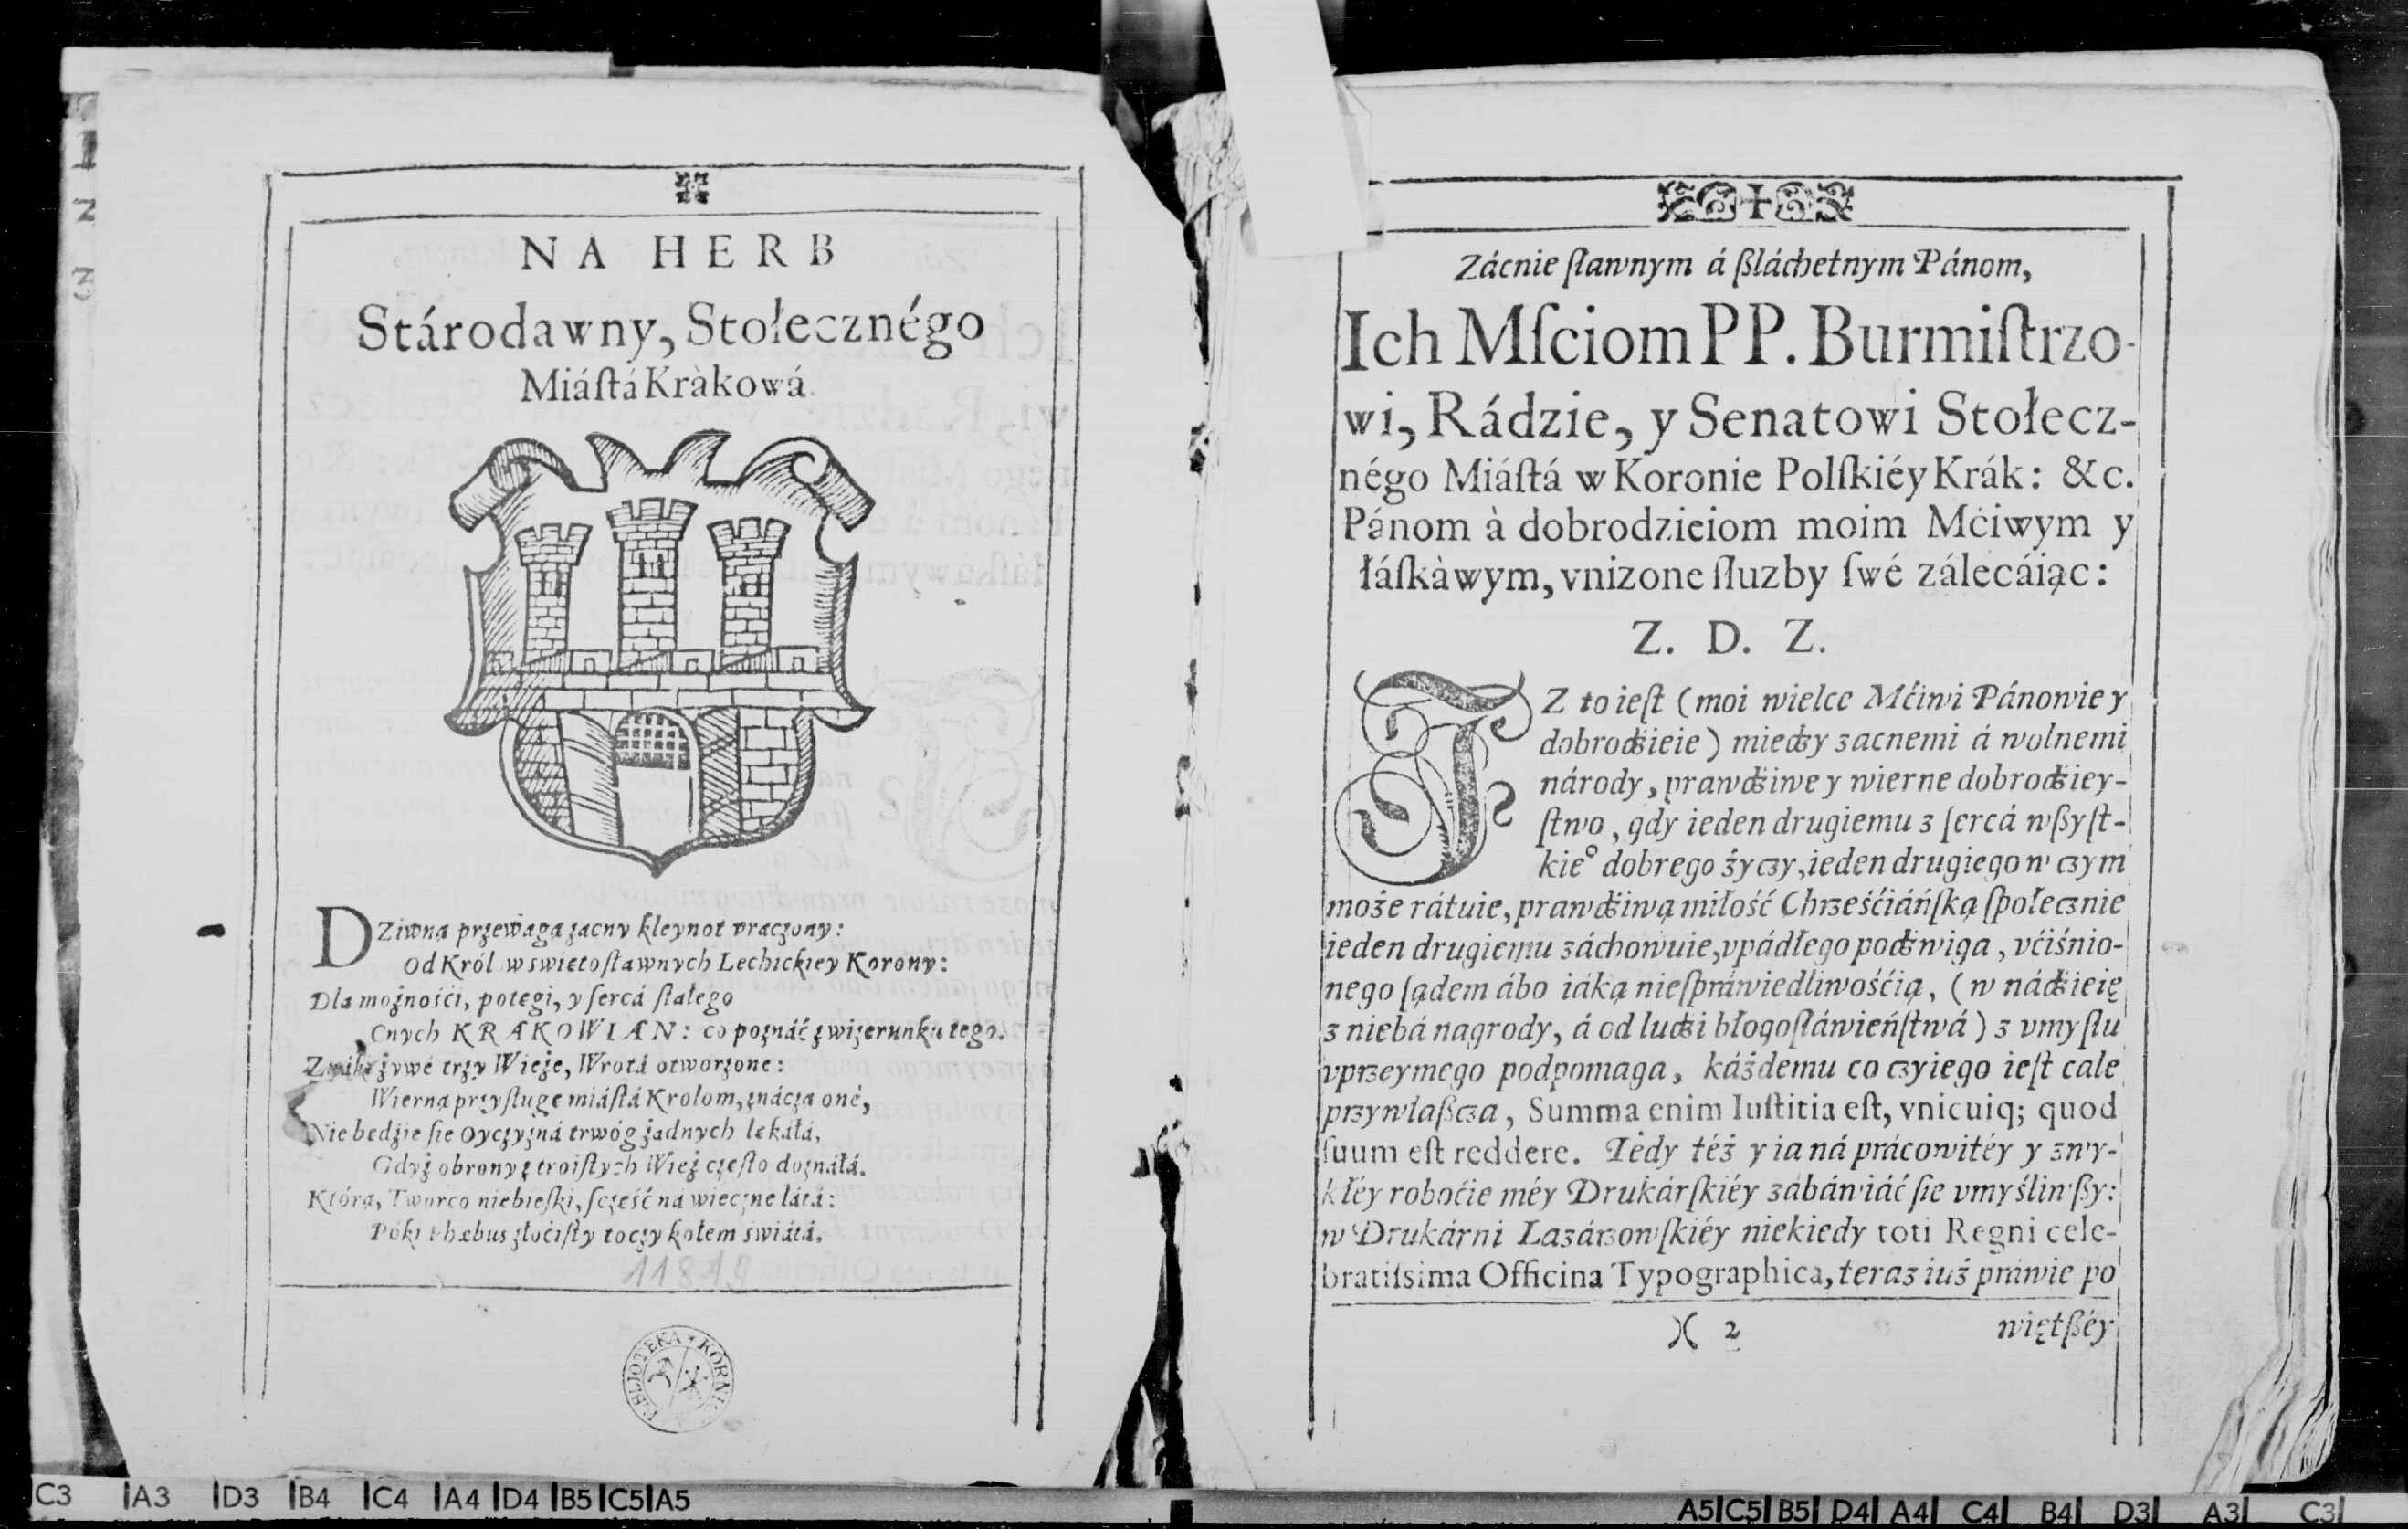 NA HERB
Stárodawny, Stołecznégo
Miáſtá Kràkowá.
DZiwną przewagą zacny kleynot vraczony:
Od Król w swiętoſławnych Lechickiey Korony:
Dla możnośći, potęgi, y ſercá ſtałego
Cnych KRAKOWIAN: co poznáć z wizerunku tego.
Znáki żywé trzy Wieże, Wrotá otworzone:
Wierną przyſługę miáſtá Krolom, znácza oné,
Nie będzie ſie Oyczyzná trwóg żadnych lękáłá,
Gdyż obrony z troiſtych Wież często doznáłá.
Którą, Tworco niebieſki, ſczęść ná wieczne látá:
Póki Phæbus złoćiſty toczy kołem świátá.
11819
BIBLJOTEKA KÓRNIC
Zácnie ſławnym á ßláchetnym Pánom,
Ich Mſciom PP. Burmiſtrzo-
wi, Rádzie, y Senatowi Stołecz-
négo Miáſtá w Koronie Polſkiéy Krák: &c.
Pánom à dobrodzieiom moim Mċiwym y
łáſkàwym, vnizone ſłuzby ſwé zálecáiąc:
Z. D. Z.
IZ to ieſt (moi wielce Mćiwi Pánowie y
dobrodźieie) między zacnemi á wolnemi
národy, prawdźiwe y wierne dobrodźiey-
ſtwo, gdy ieden drugiemu z ſercá wßyſt-
kie° dobrego życzy, ieden drugiego w czym
może rátuie, prawdźiwą miłość Chrześćiáńſką ſpołecznie
ieden drugiemu záchowuie, vpádłego podźwiga, vćiśnio-
nego ſądem ábo iáką nieſpráwiedliwośćią, (w nádźieię
z niebá nagrody, á od ludźi błogoſłáwieńſtwá) z vmyſłu
vprzeymego podpomaga, káżdemu co czyiego ieſt cale
przywłaßcza, Summa enim Iuſtitia eſt, vnicuiq; quod
ſuum eſt reddere. Tédy téż y ia ná prácowitéy y zwy-
kłéy roboćie méy Drukárſkiéy zábáwiáć ſie vmyśliwßy:
w Drukárni Lazárzowſkiéy niekiedy toti Regni cele-
bratiſsima Officina Typographica, teraz iuż práwie po
)( 2 więtßéy
C3 A3 D3 B4 C4 A4 D4 B5 C5 A5
A5 C5 B5 D4 A4 C4 B4 D3 A3 C3